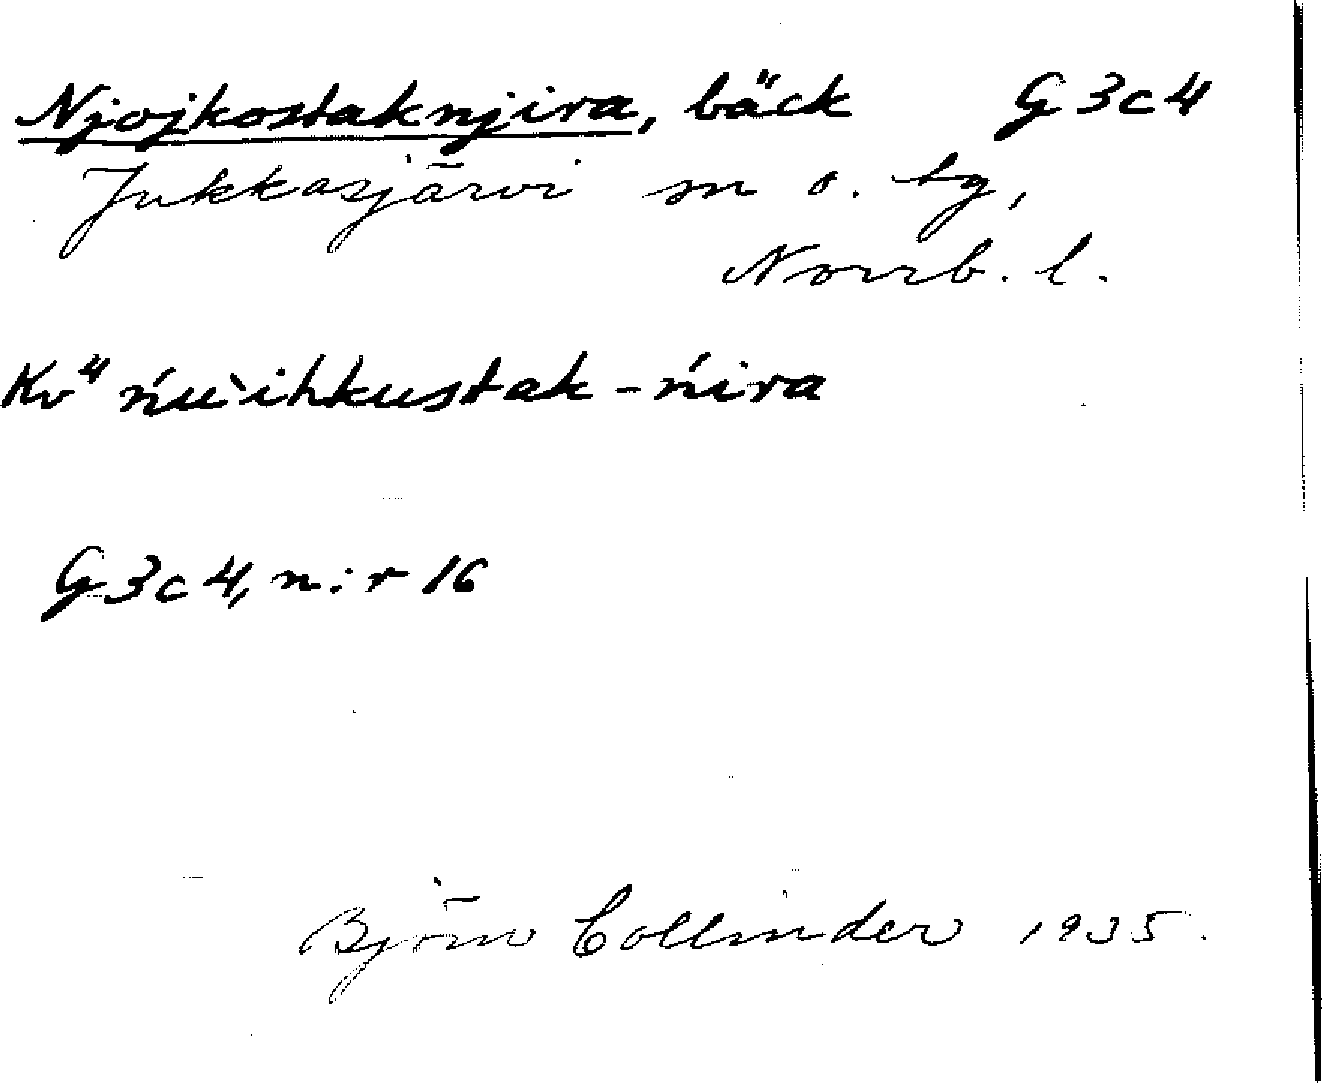 Njojkostaknjira, bäck G 3 c 4
Jukkasjärvi sn o. tg,
Norrb. l.
Kv⁴ ńu`ihkustak-ńira
G 3 c 4, n:r 16
Björn Collinder 1935.